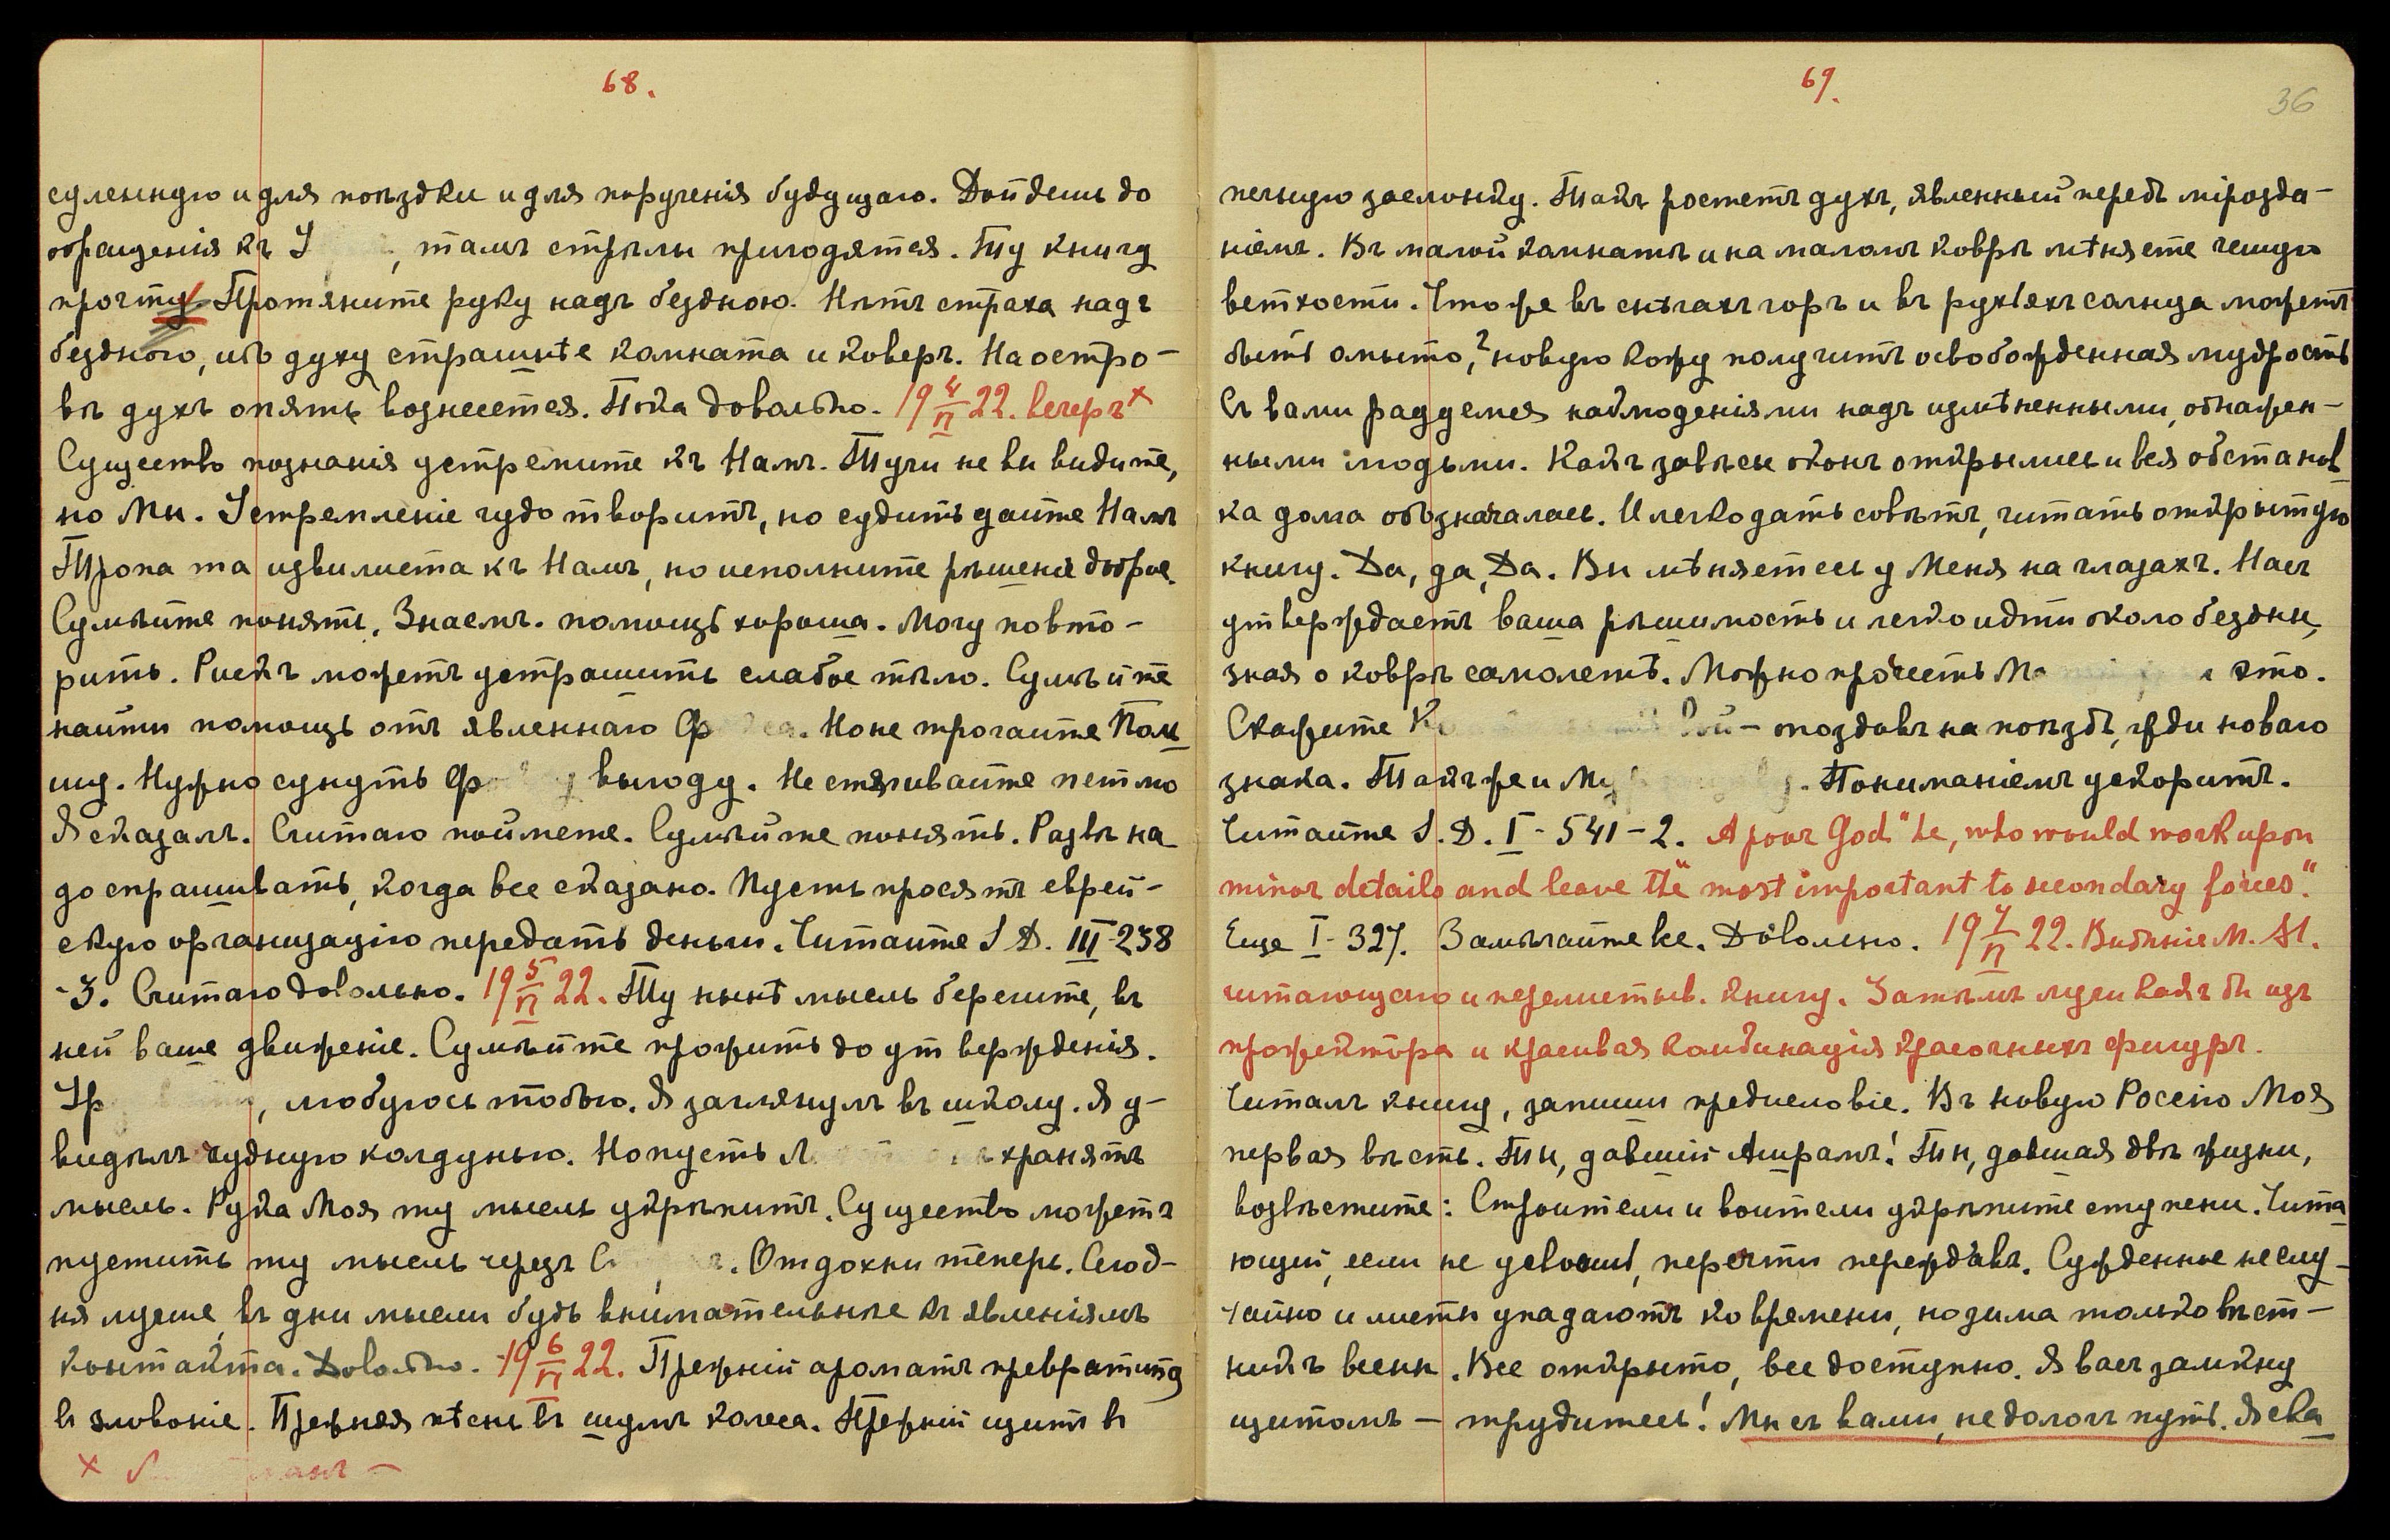 68.
суленную и для поѣздки и для порученія будущаго. Дойдешь до
обращенія къ У , тамъ стрѣлы пригодятся. Ту книгу
прочту. Протяните руку надъ бездною. Нѣтъ страха надъ
бездною, ибо духу страшнѣе комната и коверъ. На остро-
вѣ духъ опять вознесется. Пока довольно. 19 4/VI 22. вечеръ x
Существо познанія устремите къ Намъ. Тучи не вы видите,
но Мы. Устремленіе чудо творитъ, но судить дайте Намъ
Тропа та извилиста къ Намъ, но исполните рѣшеніе доброе.
Сумѣйте понять. Знаемъ. помощь хороша. Могу повто-
рить. Рискъ можетъ устрашить слабое тѣло. Сумѣйте
найти помощь отъ явленнаго Ф . Но не трогайте Пом
шу. Нужно сунуть Ф выгоду. Не стягивайте петлю
Я сказалъ. Считаю поймете. Сумѣйте понять. Развѣ на
до спрашивать, когда все сказано. Пусть просятъ еврей-
скую организацію передать деньги. Читайте S.D. III-238
-3. Считаю довольно. 19 5/VI 22. Ту нынѣ мысль берегите, въ
ней ваше движеніе. Сумѣйте прожить до утвержденія.
Ур , любуюсь тобою. Я заглянулъ въ школу. Я у-
видѣлъ чудную колдунью. Но пусть Л хранятъ
мысль. Рука Моя ту мысль укрѣпитъ. Существо можетъ
пустить ту мысль черезъ С . Отдохни теперь. Сегод-
ня лучше, въ дни мысли будь внимательнѣе къ явленіямъ
контакта. Довольно. 19 6/VI 22. Прежній ароматъ превратится
въ зловоніе. Прежняя пѣснь въ шумъ колеса. Прежній щитъ въ
x
69.
36
печную заслонку. Такъ ростетъ духъ, явленный передъ мірозда-
ніемъ. Въ малой комнатѣ и на маломъ коврѣ мѣняете чешую
ветхости. Что же въ снѣгахъ горъ и въ рухіяхъ солнца можетъ
быть омыто,? новую кожу получитъ освобожденная мудрость
Съ вами радуемся наблюденіями надъ измѣненными, обнажен-
ными людьми. Какъ завѣсы оконъ открылись и вся обстанов
ка дома обозначалась. И легко дать совѣтъ, читать открытую
книгу. Да, да, Да. Вы мѣняетесь у Меня на глазахъ. Насъ
утверждаетъ ваша рѣшимость и легко идти около бездны,
зная о коврѣ самолетѣ. Можно прочесть М это.
Скажите К Вой - опоздавъ на поѣздъ, жди новаго
знака. Такъ же и Му . Пониманіемъ ускоритъ.
Читайте S.D. I - 541-2. A poor God "he, who would work upon
minor details and leave the" most important to secondary forces".
Еще I-327. Замѣчайте все. Довольно. 19 7/VI 22. Видѣніе М. М.
читающаго и перелистыв. книгу. Затѣмъ лучи какъ бы изъ
прожектора и красивая комбинація красочныхъ фигуръ.
Читалъ книгу, запиши предисловіе. Въ новую Россію Моя
первая вѣсть. Ты, давшій Ашрамъ! Ты, давшая двѣ жизни,
возвѣстите: Строители и воители укрѣпите ступени. Чита
ющій, если не усвоишь, перечти переждавъ. Сужденное не слу-
чайно и листы упадаютъ ко времени, но зима только вѣст-
никъ весны. Все открыто, все доступно. Я васъ замкну
щитомъ — трудитесь! Мы съ вами, не дологъ путь. Я ска